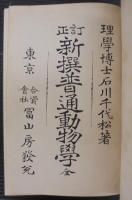 理學博士石川千代松著
訂正
新撰普通動物學 全
東京 合資會社 冨山房發兌